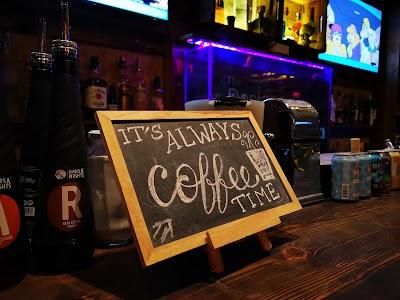 IT'S ALWAYS
coffee
TIME
R
The